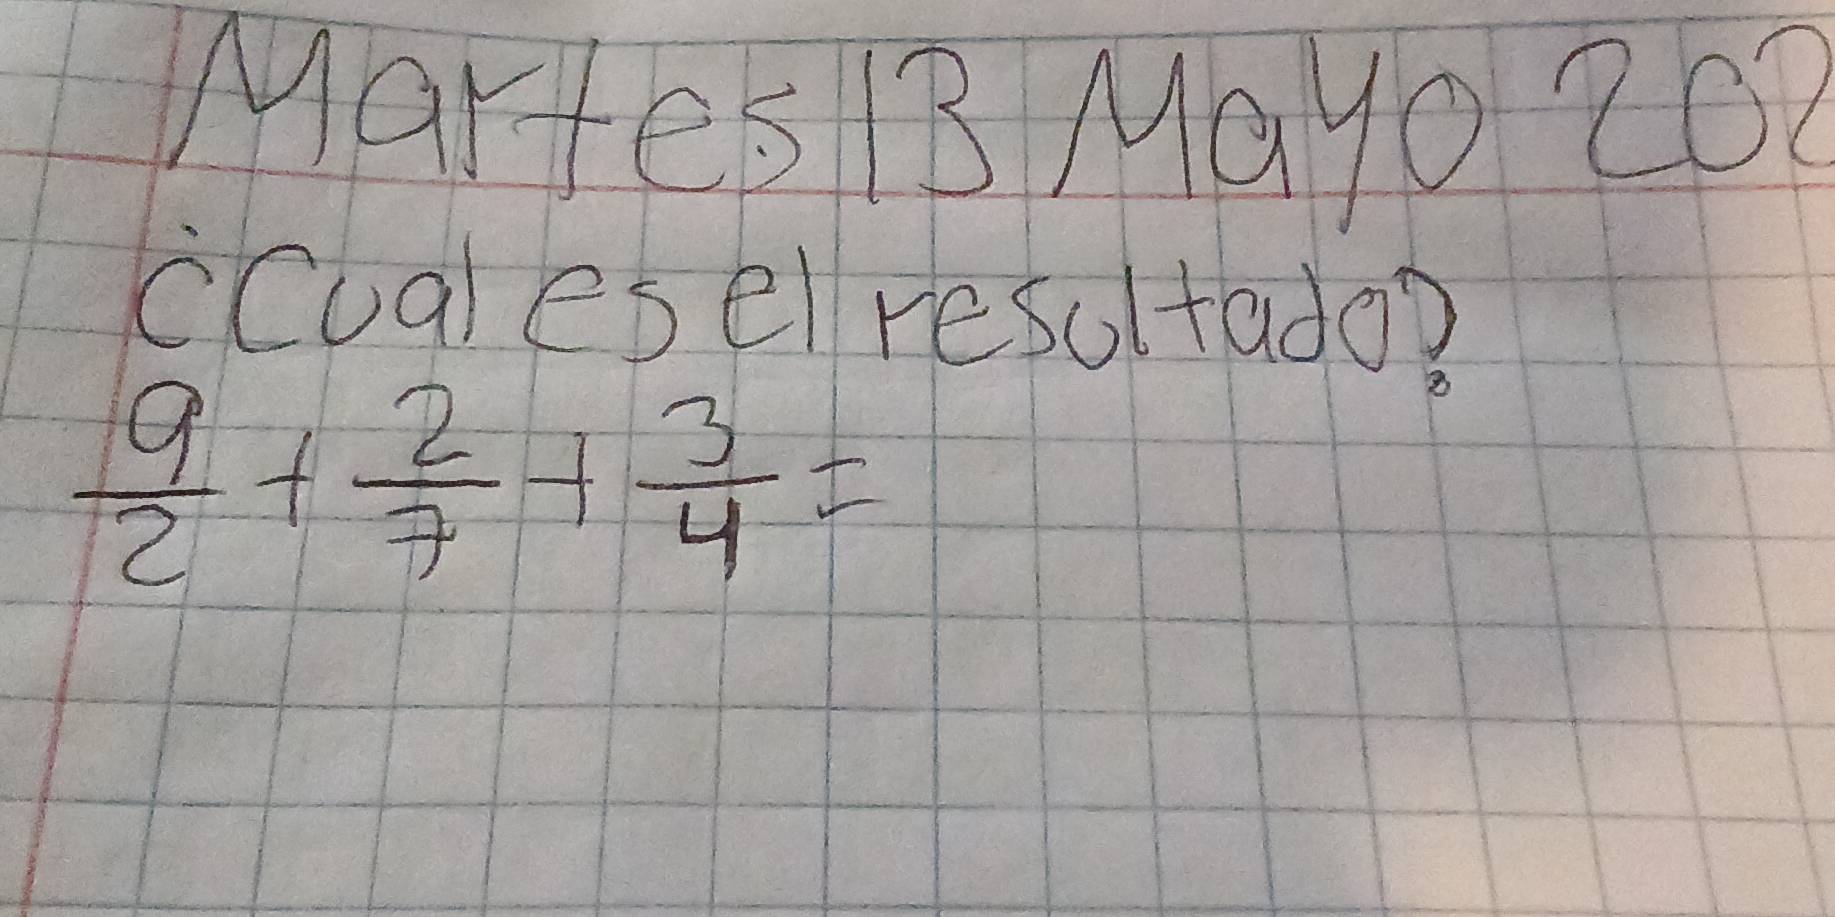 Martes 13 Mayo 202
¿Cual es el resultado?
9/2 + 2/7 + 3/4 =